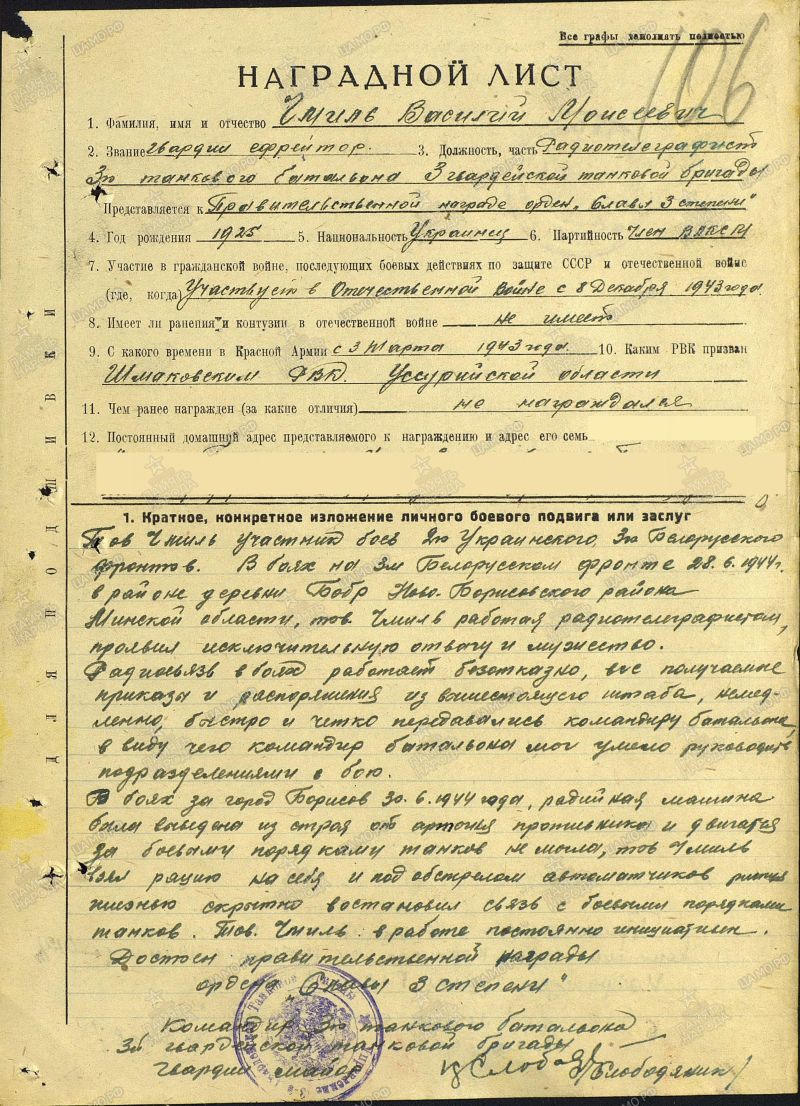 Все графы заполнять полностью
106
НАГРАДНОЙ ЛИСТ
1. Фамилия, имя и отчество Чмиль Василий Моисеевич
2. Звание гвардии ефрейтор. 3. Должность, часть Радиотелеграфист
3го танкового батальона 3 гвардейской танковой бригады
Представляется к Правительственной награде орден „Славы 3 степени"
4. Год рождения 1925 5. Национальность Украинец 6. Партийность Член ВЛКСМ
7. Участие в гражданской войне, последующих боевых действиях по защите СССР и отечественной войне
(где, когда) Участвует в Отечественной войне с 8 Декабря 1943 года.
8. Имеет ли ранения и контузии в отечественной войне не имеет
9. С какого времени в Красной Армии с 3 Марта 1943 года. 10. Каким РВК призван
Шмаковским РВК. Уссурийской области
11. Чем ранее награжден (за какие отличия) не награждался
12. Постоянный домашний адрес представляемого к награждению и адрес его семь
ДЛЯ ПОДШИВКИ
1. Краткое, конкретное изложение личного боевого подвига или заслуг
Тов Чмиль участник боев 2го Украинского, 3го Белорусского
фронтов. В боях на 3м Белорусском фронте 28.6.1944г.
в районе деревни Бобр Ново-Борисовского района
Минской области, тов. Чмиль работая радиотелеграфистом,
проявил исключительную отвагу и мужество.
Радиосвязь в боях работает безотказно, все получаемые
приказы и распоряжения из вышестоящего штаба, немед-
ленно, быстро и четко передавались командиру батальона,
в виду чего командир батальона мог умело руководить
подразделениями в бою.
В боях за город Борисов 30.6.1944 года, радийная машина
была выведена из строя от артогня противника и двигатся
за боевыми порядками танков не могла, тов Чмиль
взял рацию на себя и под обстрелом автоматчиков рискуя
жизнью скрытно востановил связь с боевыми порядками
танков. Тов. Чмиль в работе постоянно инициативен.
Достоен правительственной награды
ордена „Славы 3 степени"
Командир 3го танкового батальона
3й гвардейской танковой бригады
Гвардии майор /Слободяник/